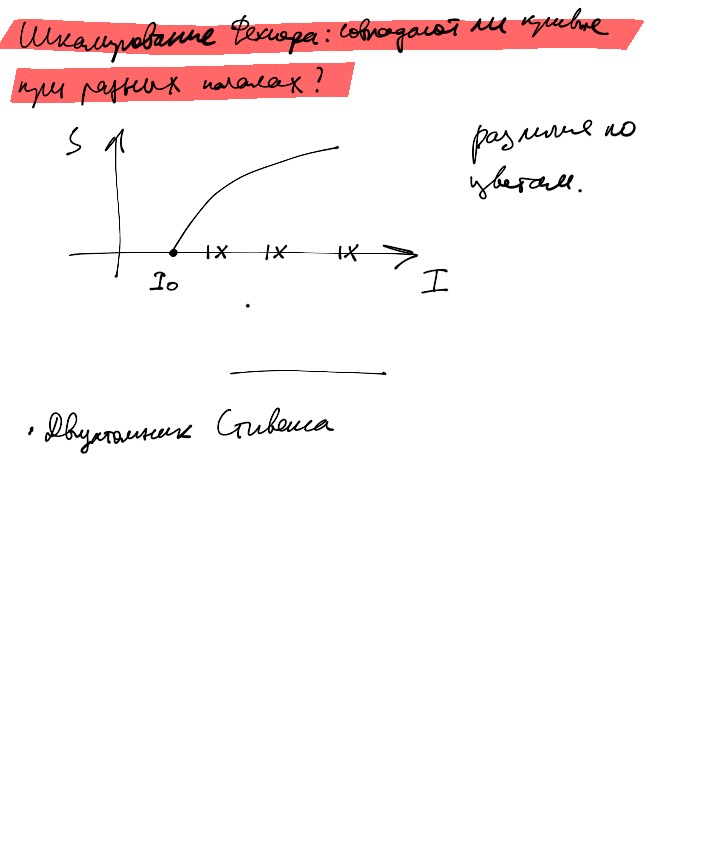 Шкалирование Фехнера: совпадают ли кривые
при разных началах?
S
различие по
цветам.
I₀
I
· Двухтомник Стивенса